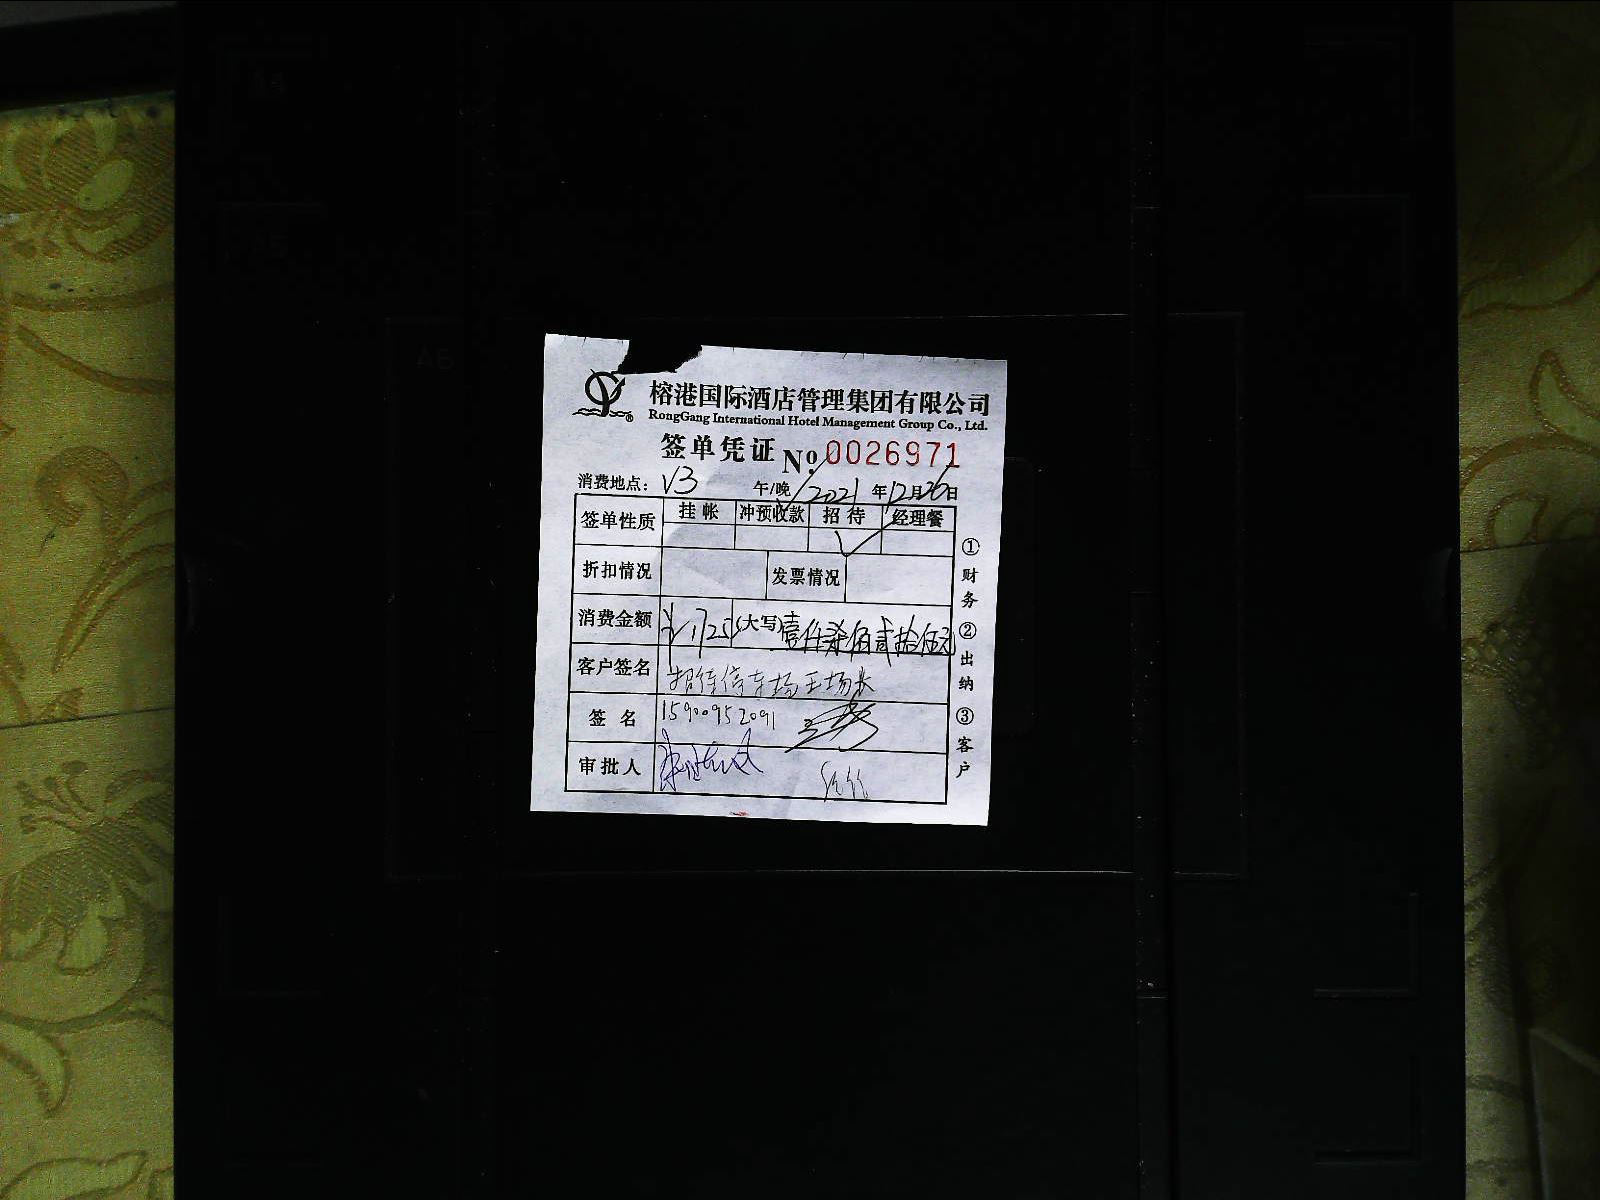 榕港国际酒店管理集团有限公司
RongGang International Hotel Management Group Co., Ltd.
签单凭证 № 0026971
消费地点：V3 午/晚 2021年12月26日
签单性质 挂帐 冲预收款 招待 经理餐
折扣情况 发票情况
消费金额 ¥1725 (大写)壹仟柒佰贰拾伍元
客户签名 招待停车场王场长
签名 15900952091
审批人
①财务 ②出纳 ③客户
A6